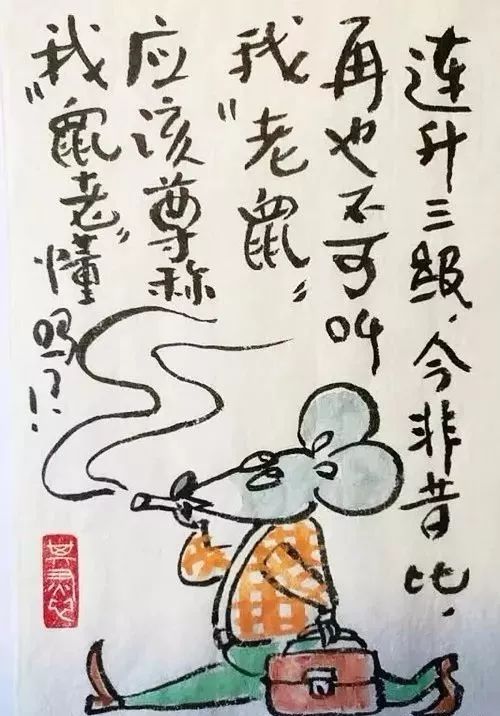 连升三级，今非昔比，
再也不可叫
我“老鼠”
应该尊称
我“鼠老”懂吗？！